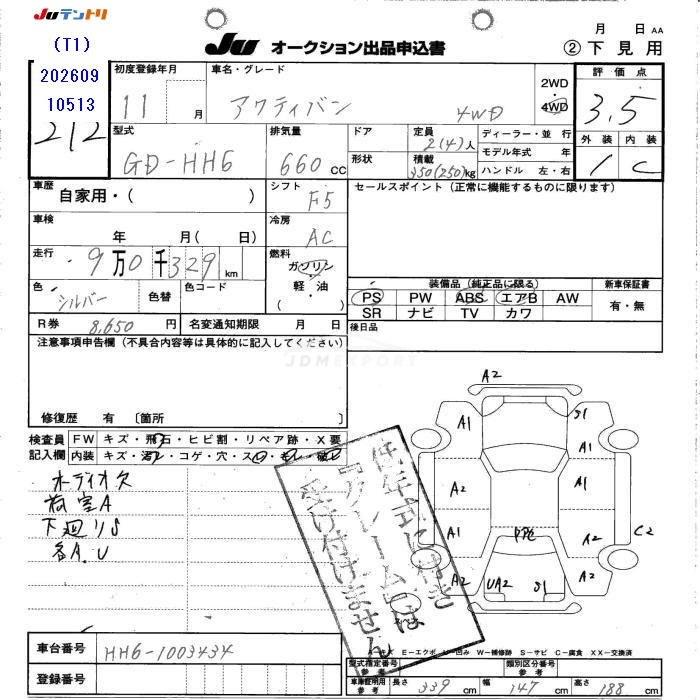 JUテントリ
(T1)
202609
10513
212
JU オークション出品申込書
月 日 AA
② 下見用
初度登録年月 11 月
車名・グレード アクティバン 4WD
2WD
4WD
評価点
3.5
型式 GD-HH6
排気量 660 CC
ドア
形状
定員 2(4)人
積載 350(250)kg
ディーラー・並行
モデル年式 年
ハンドル 左・右
外装 内装
1 C
車歴 自家用・( )
シフト F5
セールスポイント(正常に機能するものに限ります)
車検 年 月( 日)
冷房 AC
走行 9万0千329km
燃料 ガソリン・軽・油 ( )
色 シルバー 色替
色コード
装備品(純正品に限る)
新車保証書
PS PW ABS エアB AW
有・無
SR ナビ TV カワ
R券 8,650 円
名変通知期限 月 日
後日品
注意事項申告欄(不具合内容等は具体的に記入してください)
JDMEXPORT
修復歴 有 〔箇所 〕
検査員記入欄
FW キズ・飛石・ヒビ割・リペア跡・X要
内装 キズ・汚れ・コゲ・穴・スレ・モレ・破レ
オーディオ欠
荷室A
下廻りS
各A.U
低年式に付き
『フレーム』は
受け付けません
A2
A1
S1
A1
A2
A1
A1
A2
C2
A2
UA2
S1
A2
スペア
E-エクボ U-凹み W-補修跡 S-サビ C-腐食 XX-交換済
車台番号 HH6-1003434
登録番号
型式指定番号 参考
類別区分番号 参考
車庫証明用 参考 長さ 339 cm 幅 147 cm 高さ 188 cm